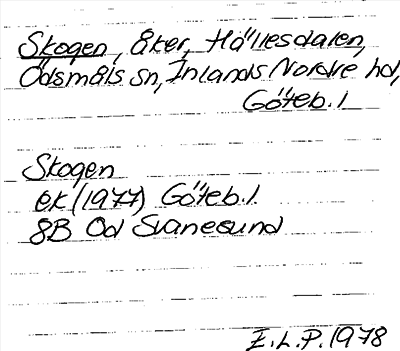 Skogen, åker, Hällesdalen,
Ödsmåls sn, Inlands Nordre hd,
Göteb. l
Skogen
ek (1977) Göteb. l.
8B Od Svanesund
E.L.P. 1978